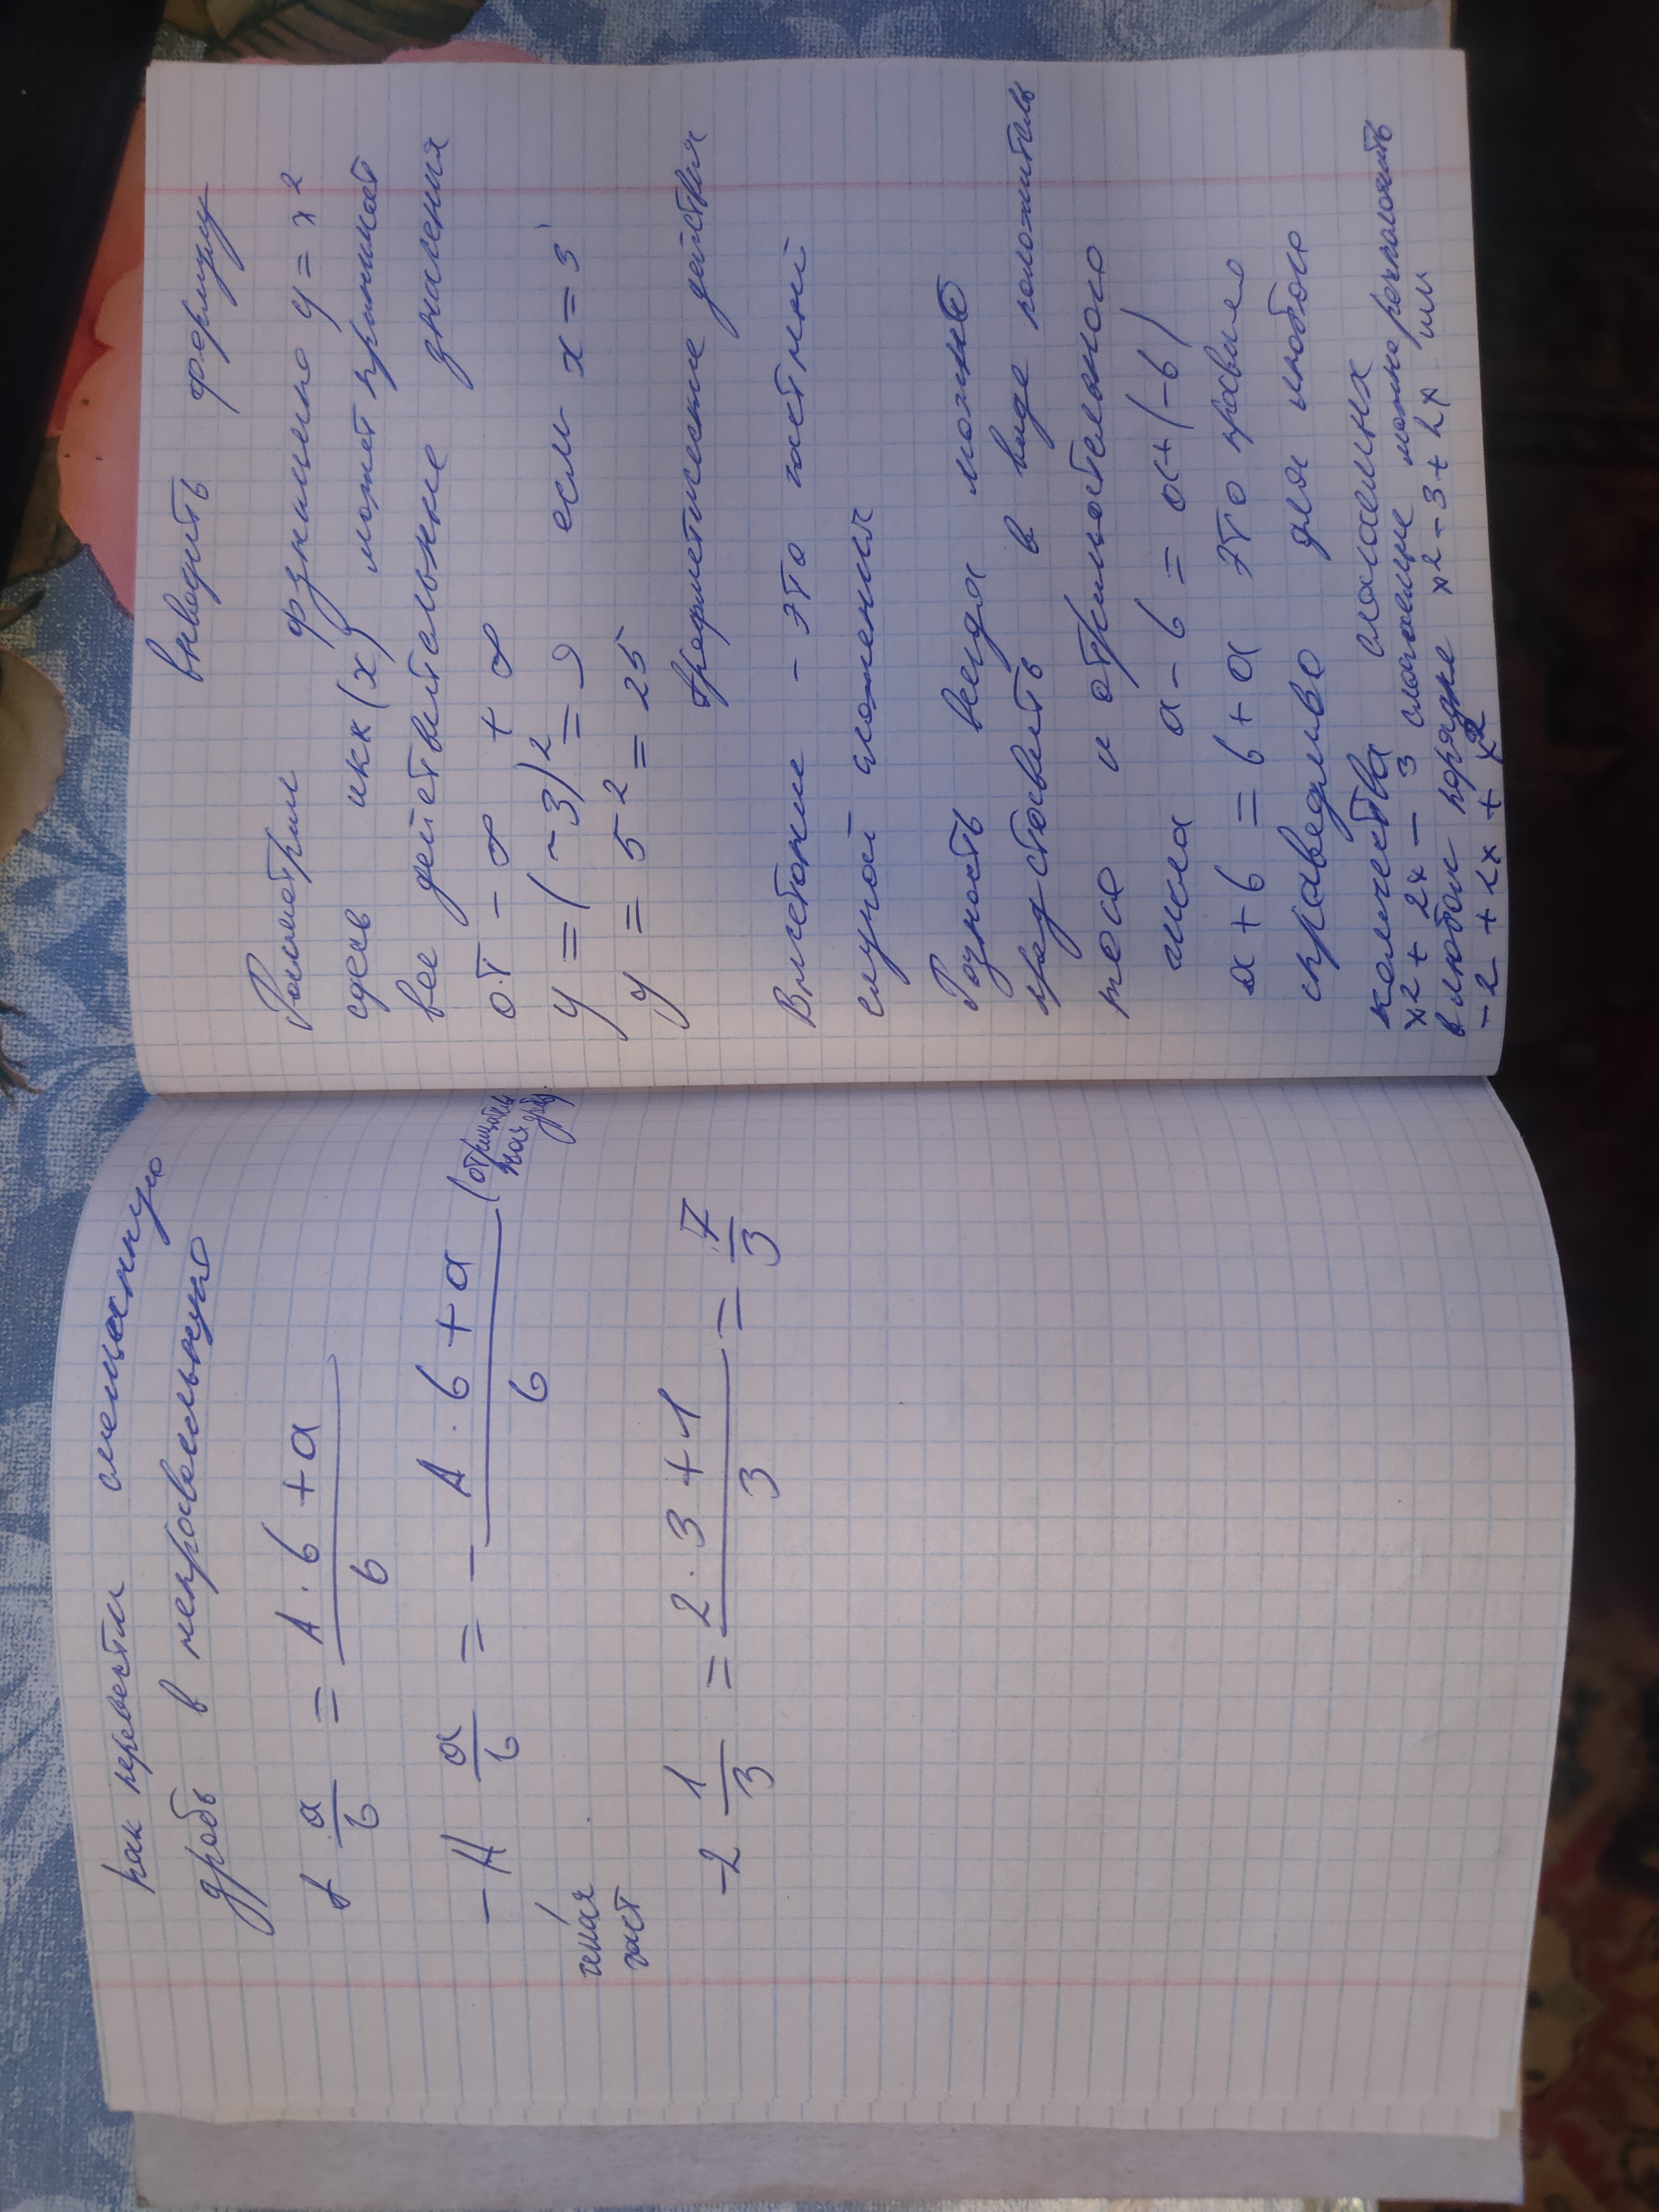 как перевести смешанную
дробь в неправильную
A a/b = A · b + a / b
- A a/b = - A · b + a / b (отрицатель
ная дробь
целая
част
-2 1/3 = 2 · 3 + 1 / 3 = 7/3
выводить формулу
Рассмотрим функцию y = x²
сдесь икк (x) может принимат
все действительные значения
от - ∞ + ∞
y = (-3)² = 9 если x = 3
y = 5² = 25
Арефметические действия
Вычетание - это частный
случай сложения
Разность всегда можно
представить в виде положитель
ного и отрицательного
числа a - b = a + (-b)
a + b = b + a это правило
справедливо для любого
количества слагаемых
x2 + 2x - 3 слагаемые можно расположить
в любом порядке x2 - 3 + 2x или
- 2 + 2x + x2